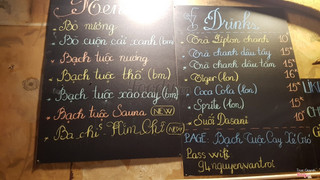 Menu
Bò nướng
Bò cuộn cải xanh (bm)
Bạch tuộc nướng
Bạch tuộc thố (bm)
Bạch tuộc xào cay (bm)
Bạch tuộc Sauna NEW
Ba chỉ Kim Chi NEW
Drink
Trà Lipton chanh 10k
Trà chanh dâu tây 15k
Trà chanh dâu tằm 15k
Tiger (lon) 16k
Coca Cola (lon) 15k
Sprite (lon) 15k
Suối Dasani 10k
PAGE: Bạch Tuộc Cay Xé Gió
Pass wifi
94nguyenvantroi